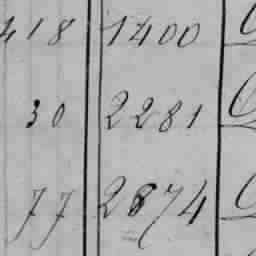 418 1400
30 2281
77 2874